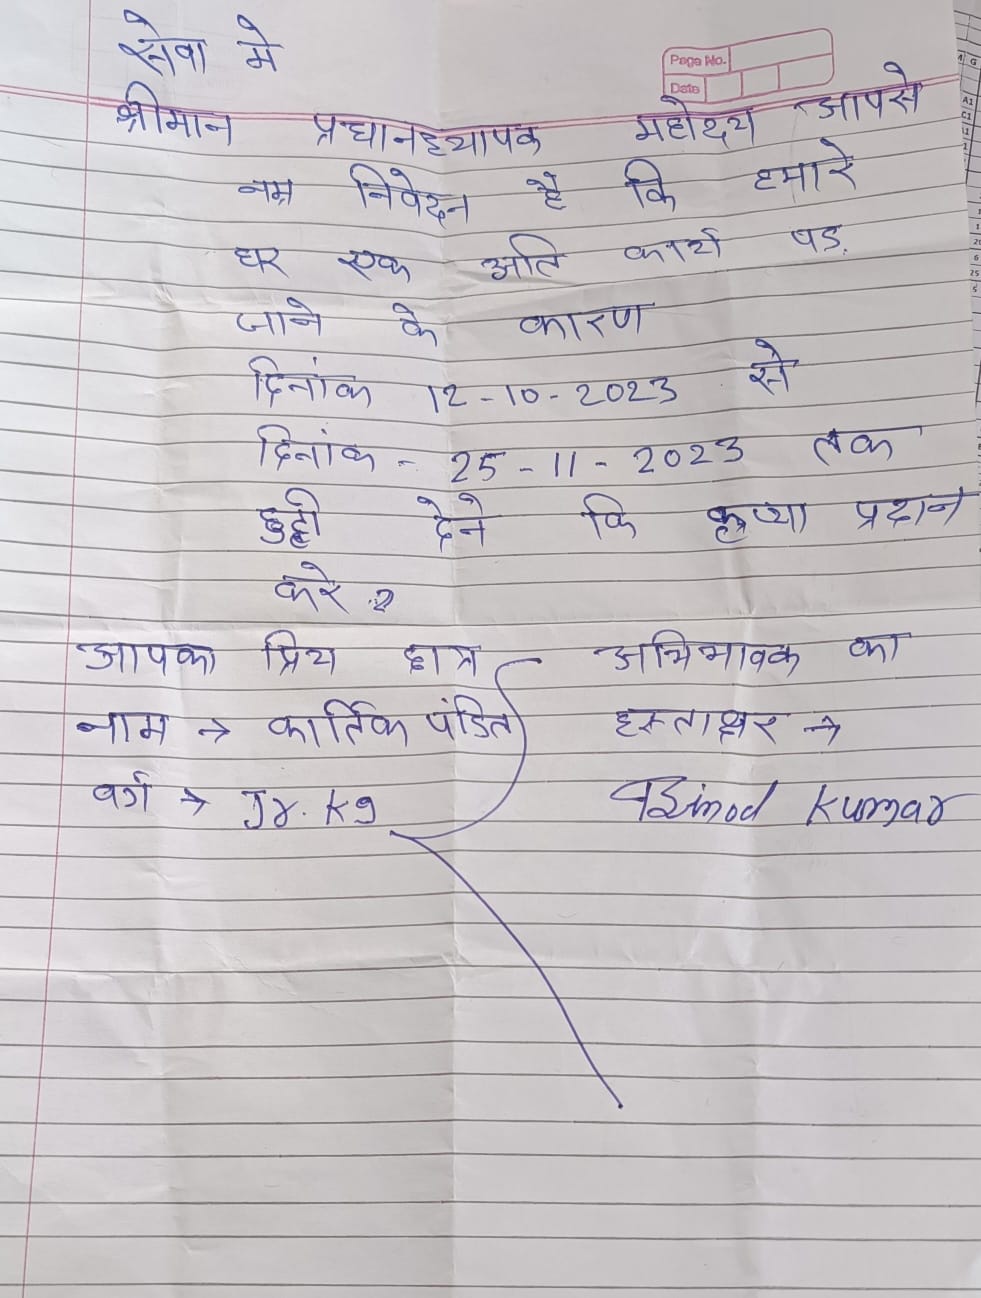 सेवा मे
Page No.
Date
श्रीमान प्रधानध्यापक महोदय आपसे
नम्र निवेदन है कि हमारे
घर एक अति कार्य पड़
जाने के कारण
दिनांक 12-10-2023 से
दिनांक - 25-11-2023 तक
छुट्टी देने कि कृप्या प्रदान
करे.
आपका प्रिय छात्र
नाम → कार्तिक पंडित
वर्ग → Jr. Kg
अभिभावक का
हस्ताक्षर →
Binod Kumar